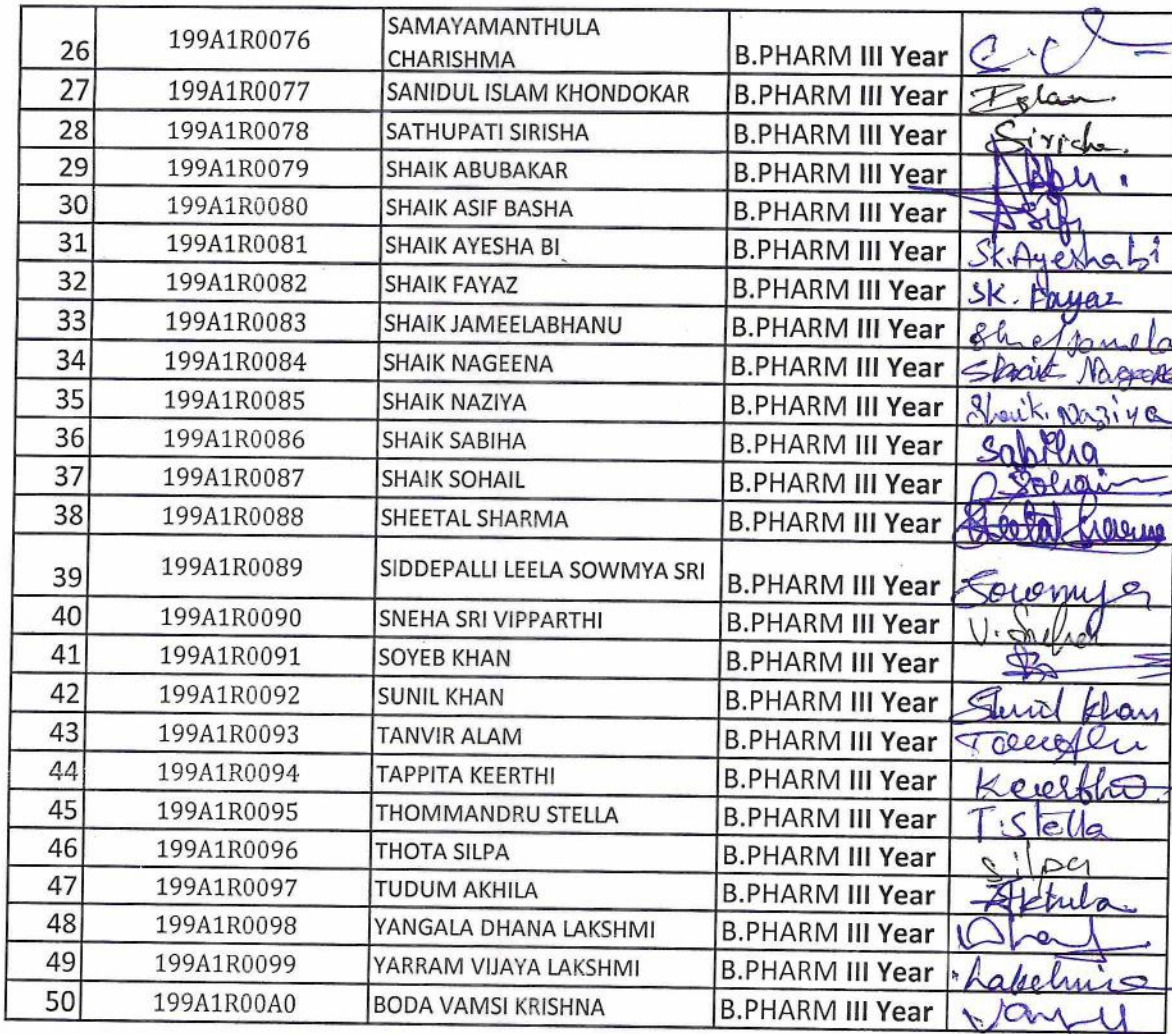 26 199A1R0076 SAMAYAMANTHULA CHARISHMA B.PHARM III Year C.C
27 199A1R0077 SANIDUL ISLAM KHONDOKAR B.PHARM III Year
28 199A1R0078 SATHUPATI SIRISHA B.PHARM III Year Sirisha.
29 199A1R0079 SHAIK ABUBAKAR B.PHARM III Year Abbu.
30 199A1R0080 SHAIK ASIF BASHA B.PHARM III Year Asif
31 199A1R0081 SHAIK AYESHA BI B.PHARM III Year Sk.Ayeshabi
32 199A1R0082 SHAIK FAYAZ B.PHARM III Year SK. Fayaz
33 199A1R0083 SHAIK JAMEELABHANU B.PHARM III Year
34 199A1R0084 SHAIK NAGEENA B.PHARM III Year Shaik Nageena
35 199A1R0085 SHAIK NAZIYA B.PHARM III Year Shaik. Naziya
36 199A1R0086 SHAIK SABIHA B.PHARM III Year Sabiha
37 199A1R0087 SHAIK SOHAIL B.PHARM III Year Sohail
38 199A1R0088 SHEETAL SHARMA B.PHARM III Year Sheetal Sharma
39 199A1R0089 SIDDEPALLI LEELA SOWMYA SRI B.PHARM III Year Sowmya
40 199A1R0090 SNEHA SRI VIPPARTHI B.PHARM III Year V. Sneha
41 199A1R0091 SOYEB KHAN B.PHARM III Year
42 199A1R0092 SUNIL KHAN B.PHARM III Year Sunil Khan
43 199A1R0093 TANVIR ALAM B.PHARM III Year
44 199A1R0094 TAPPITA KEERTHI B.PHARM III Year Keerthi.
45 199A1R0095 THOMMANDRU STELLA B.PHARM III Year T.Stella
46 199A1R0096 THOTA SILPA B.PHARM III Year Silpa
47 199A1R0097 TUDUM AKHILA B.PHARM III Year Akhila
48 199A1R0098 YANGALA DHANA LAKSHMI B.PHARM III Year
49 199A1R0099 YARRAM VIJAYA LAKSHMI B.PHARM III Year Lakshmi
50 199A1R00A0 BODA VAMSI KRISHNA B.PHARM III Year Vamsi